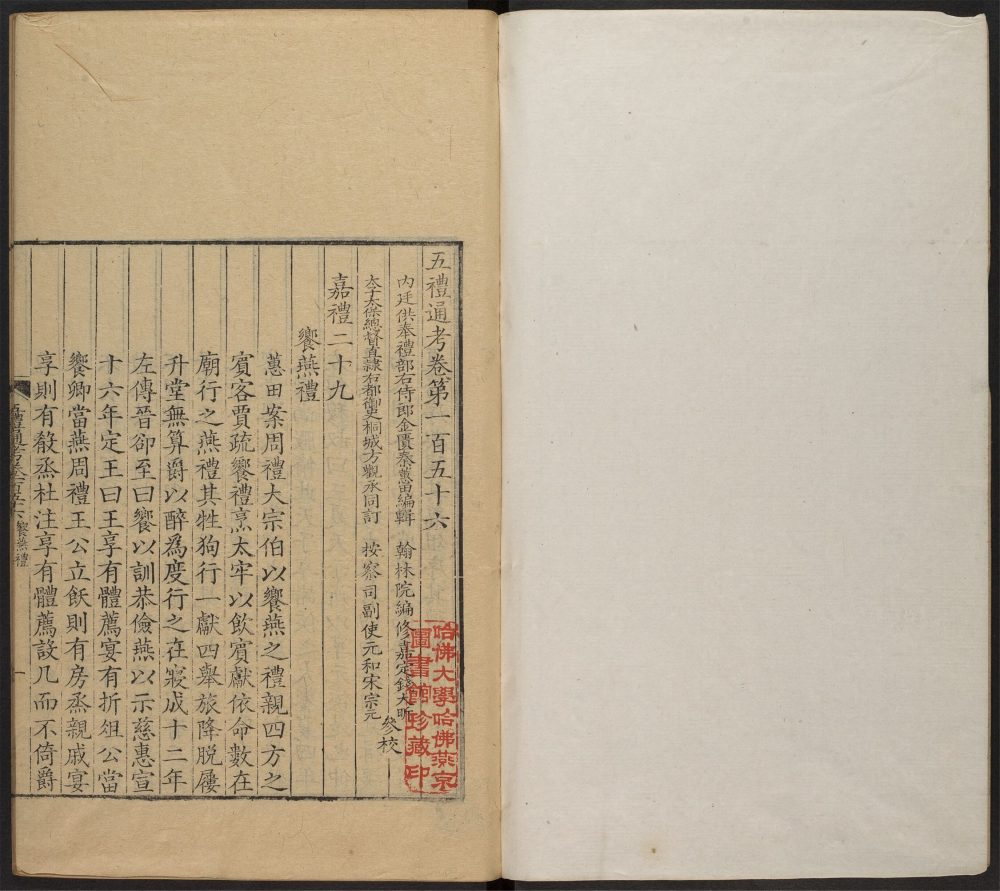 五禮通考卷第一百五十六
內廷供奉禮部右侍郎金匱秦蕙田編輯 翰林院編修嘉定錢大昕
太子太保總督直隸右都御史桐城方觀承同訂 按察司副使元和宋宗元
參校
嘉禮二十九
饗燕禮
蕙田案周禮大宗伯以饗燕之禮親四方之
賓客賈疏饗禮烹太牢以飲賓獻依命數在
廟行之燕禮其牲狗行一獻四舉旅降脫屨
升堂無算爵以醉為度行之在寢成十二年
左傳晉卻至曰饗以訓恭儉燕以示慈惠宣
十六年定王曰王享有體薦宴有折俎公當
饗卿當燕周禮王公立飫則有房烝親戚宴
享則有殽烝杜注享有體薦設几而不倚爵
五禮通考卷一百五十六 饗燕禮
一
哈佛大學哈佛燕京
圖書館珍藏印